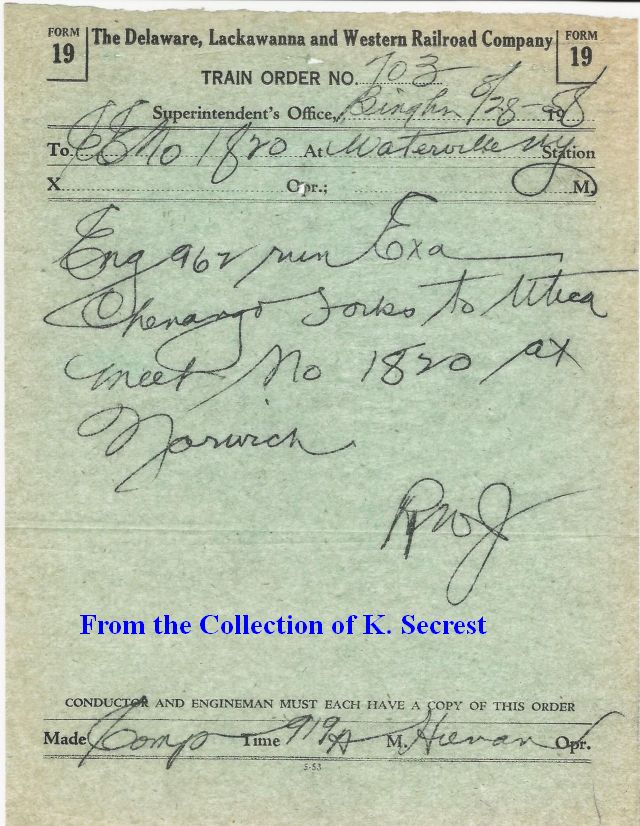 FORM 19 The Delaware, Lackawanna and Western Railroad Company FORM 19
TRAIN ORDER NO. 703
Superintendent's Office, Binghn 9/28-1958
To C&E No 1820 At Waterville NY Station
X Opr.; M.
Eng 962 run Exa
Chenango Forks to Utica
meet No 1820 at
Norwich
RWJ
From the Collection of K. Secrest
CONDUCTOR AND ENGINEMAN MUST EACH HAVE A COPY OF THIS ORDER
Made Comp Time 919 A M. Opr.
5-53